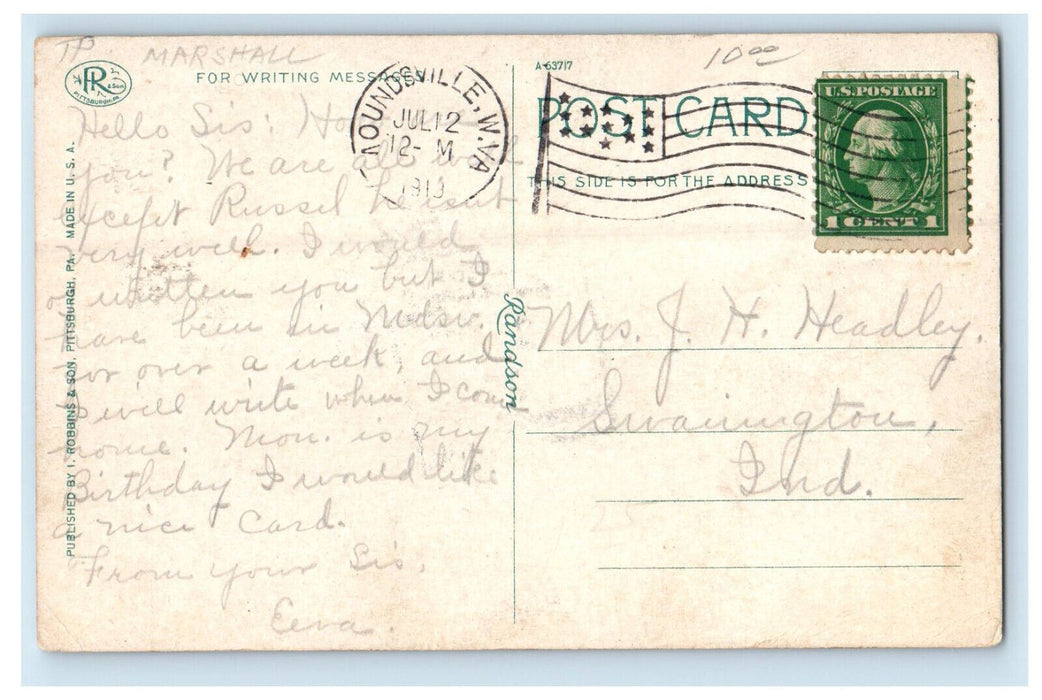 TP MARSHALL
10 00
PR & Son
PITTSBURGH, PA.
FOR WRITING MESSAGES
A-63717
POST CARD
THIS SIDE IS FOR THE ADDRESS
MOUNDSVILLE, W.VA
JUL 12
12- M
1913
U.S. POSTAGE
1 CENT 1
PUBLISHED BY I. ROBBINS & SON, PITTSBURGH, PA. MADE IN U. S. A.
Randson
Hello Sis: How
you? We are all well
except Russel he isnt
very well. I would
of written you but I
have been in Mdsv.
for over a week, and
I will write when I come
home. Mon. is my
Birthday I would like
a nice Card.
From your Sis,
Eeva.
Mrs. J. H. Headley.
Swannington,
Ind.
25